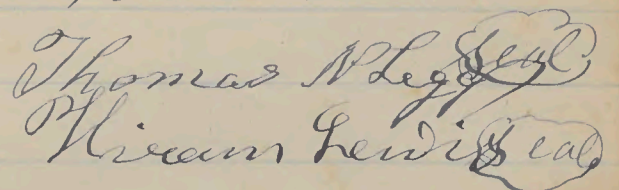 Thomas N Legg Seal
Hiram Lewis Seal